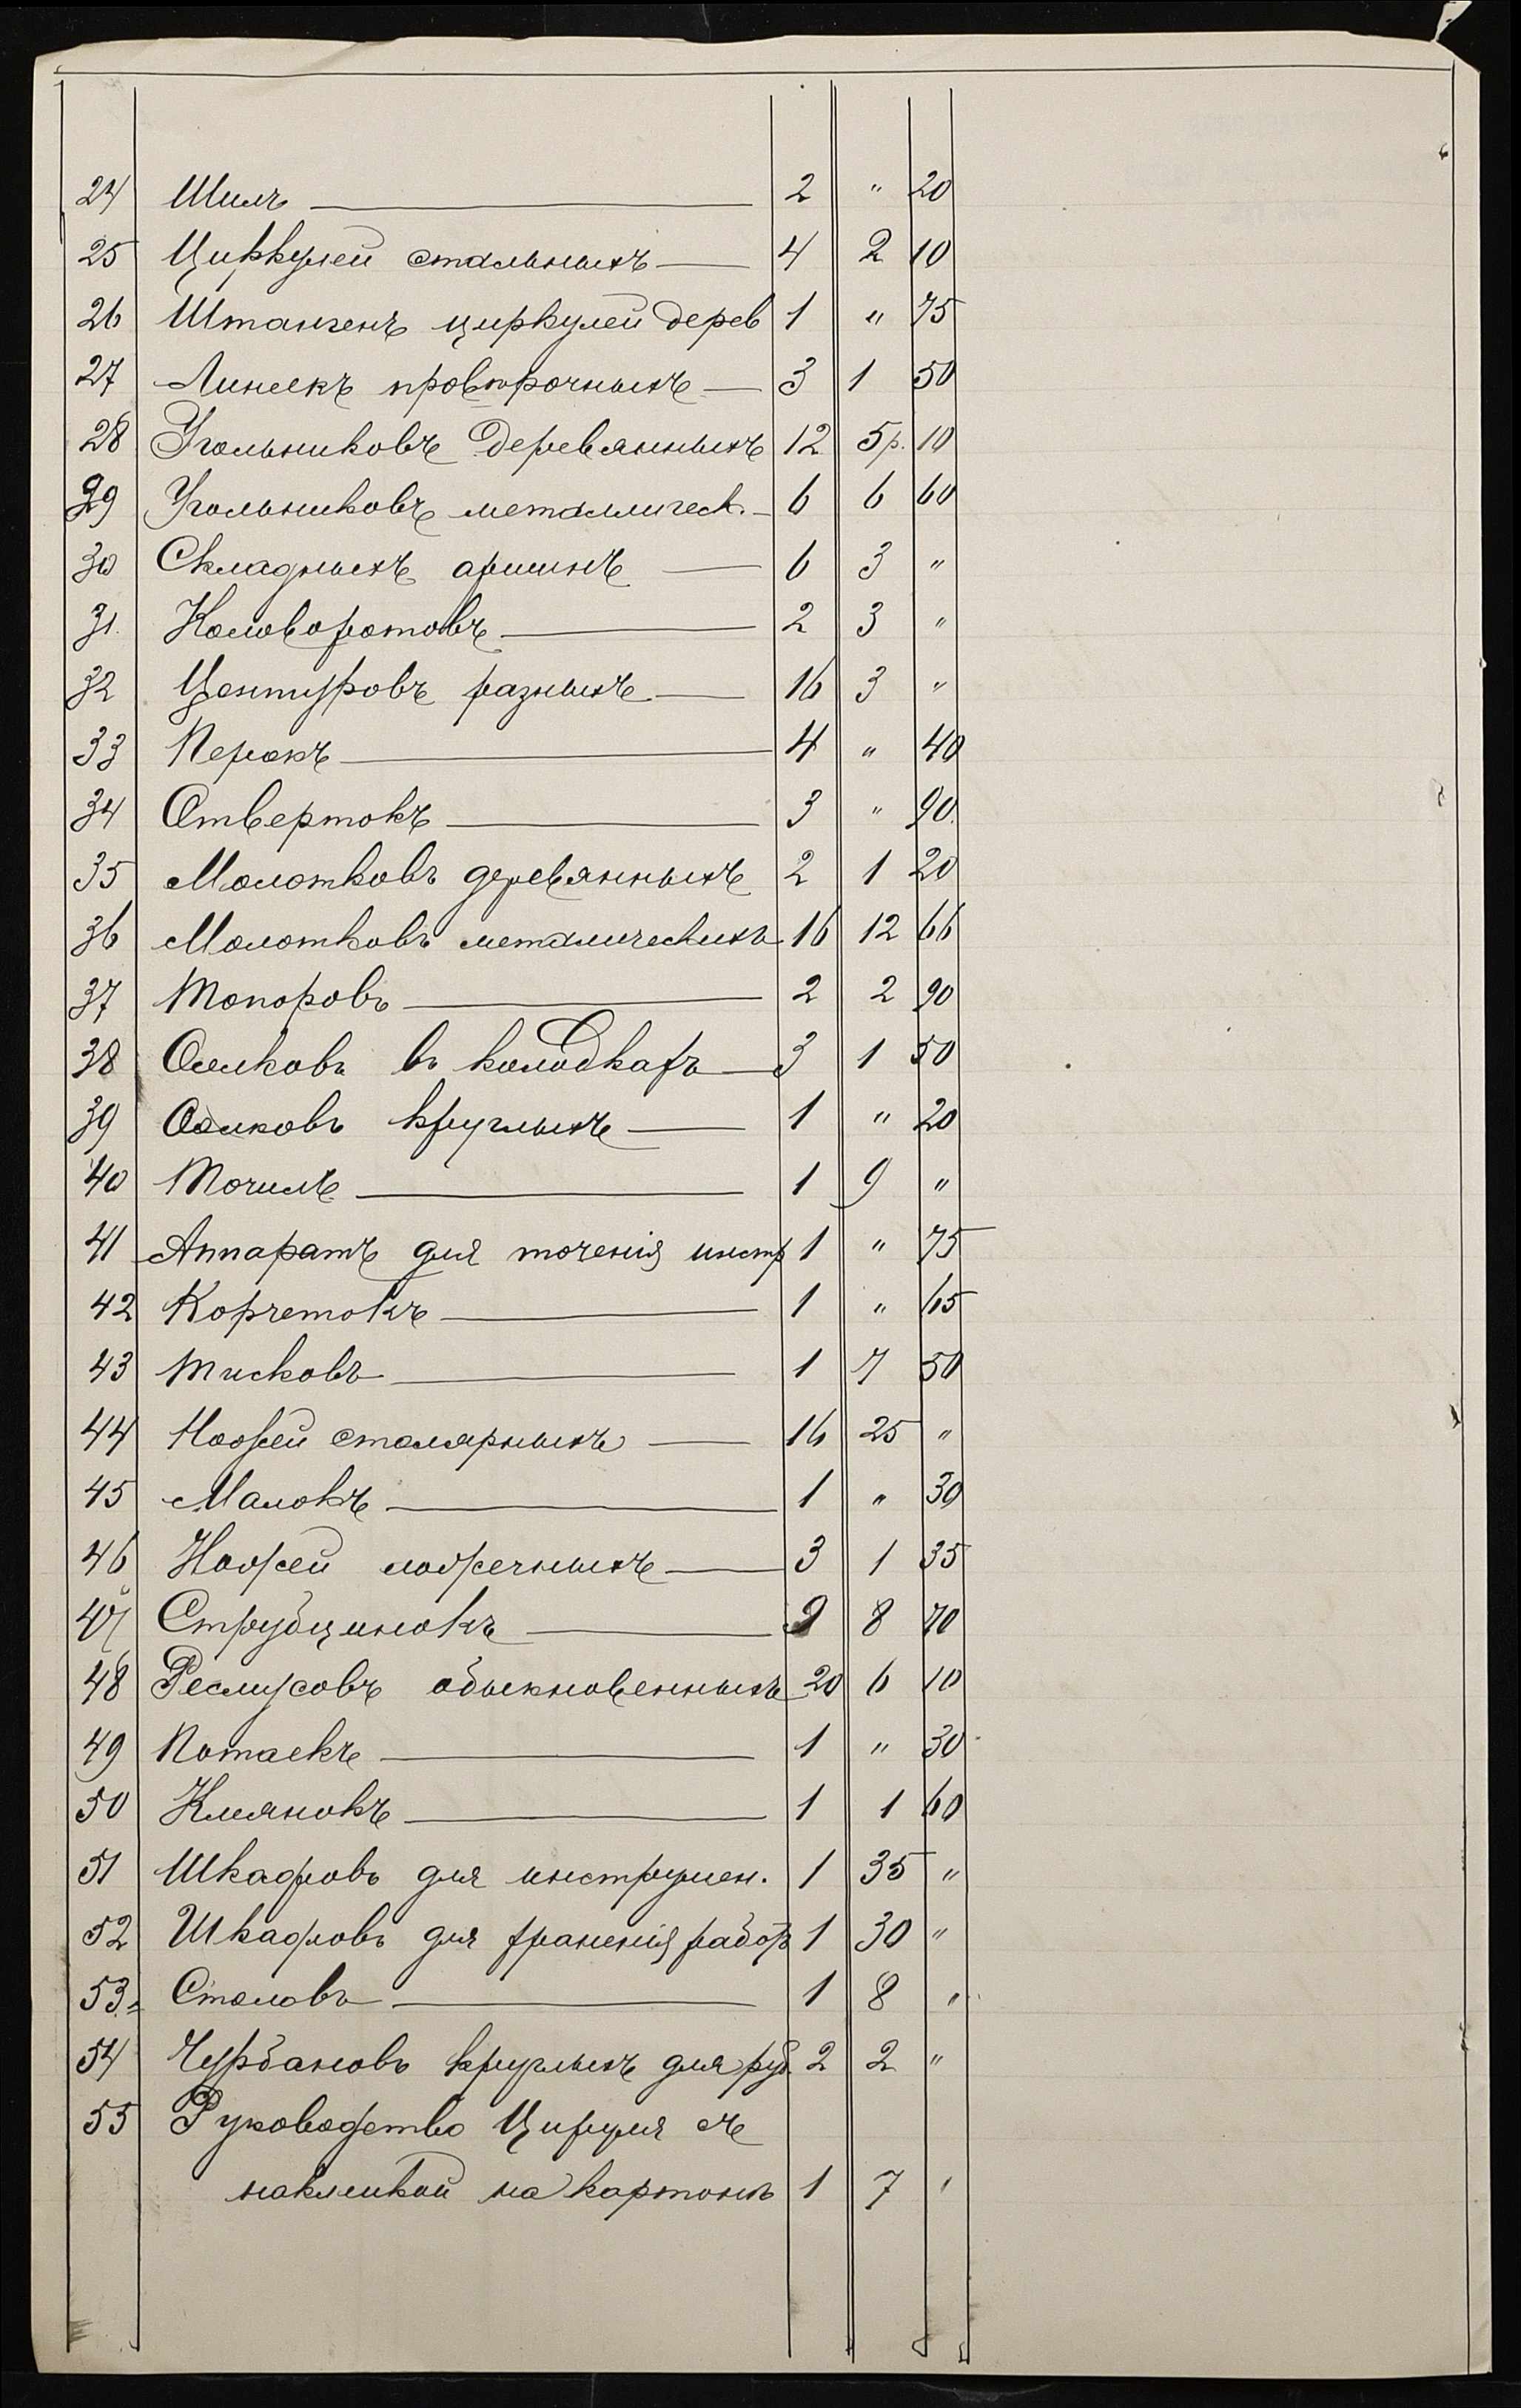 24 Шилъ 2 " 20
25 Циркулей стальныхъ 4 2 10
26 Штангенъ циркулей дерев 1 " 75
27 Линеекъ провѣрочныхъ 3 1 50
28 Угольниковъ деревянныхъ 12 5р. 10
29 Угольниковъ металлическ. 6 6 60
30 Складныхъ аршинъ 6 3 "
31. Коловоротовъ 2 3 "
32 Центуровъ разныхъ 16 3 "
33 Перокъ 4 " 40
34 Отвертокъ 3 " 90.
35 Молотковъ деревянныхъ 2 1 20
36 Молотковъ металическихъ 16 12 66
37 Топоровъ 2 2 90
38 Оселковъ въ колодкахъ 3 1 50
39 Оселковъ круглыхъ 1 " 20
40 Точилъ 1 9 "
41 Аппаратъ для точенія инстр 1 " 75
42 Корчетокъ 1 " 65
43 Тисковъ 1 7 50
44 Ножей столярныхъ 16 25 "
45 Малокъ 1 " 30
46 Ножей ложечныхъ 3 1 35
47 Струбцинокъ 9 8 70
48 Ресмусовъ обыкновенныхъ 20 6 10
49 Потаекъ 1 " 30
50 Клеянокъ 1 1 60
51 Шкафовъ для инструмен. 1 35 "
52 Шкафовъ для храненія работъ 1 30 "
53. Столовъ 1 8 "
54 Чурбановъ круглыхъ для руб. 2 2 "
55 Руководство Цируля съ
наклейкой на картонъ 1 7 "